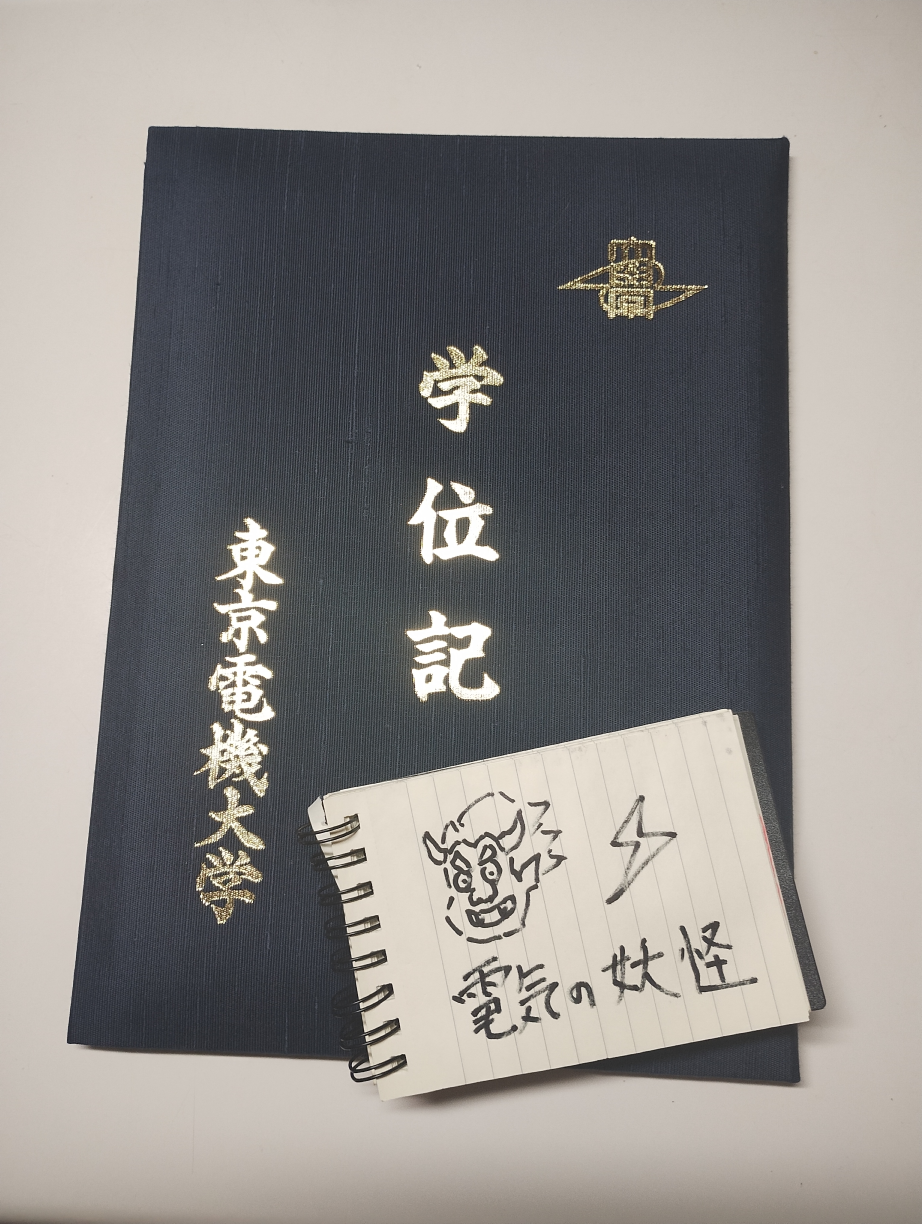 学位記
東京電機大学
電気の妖怪